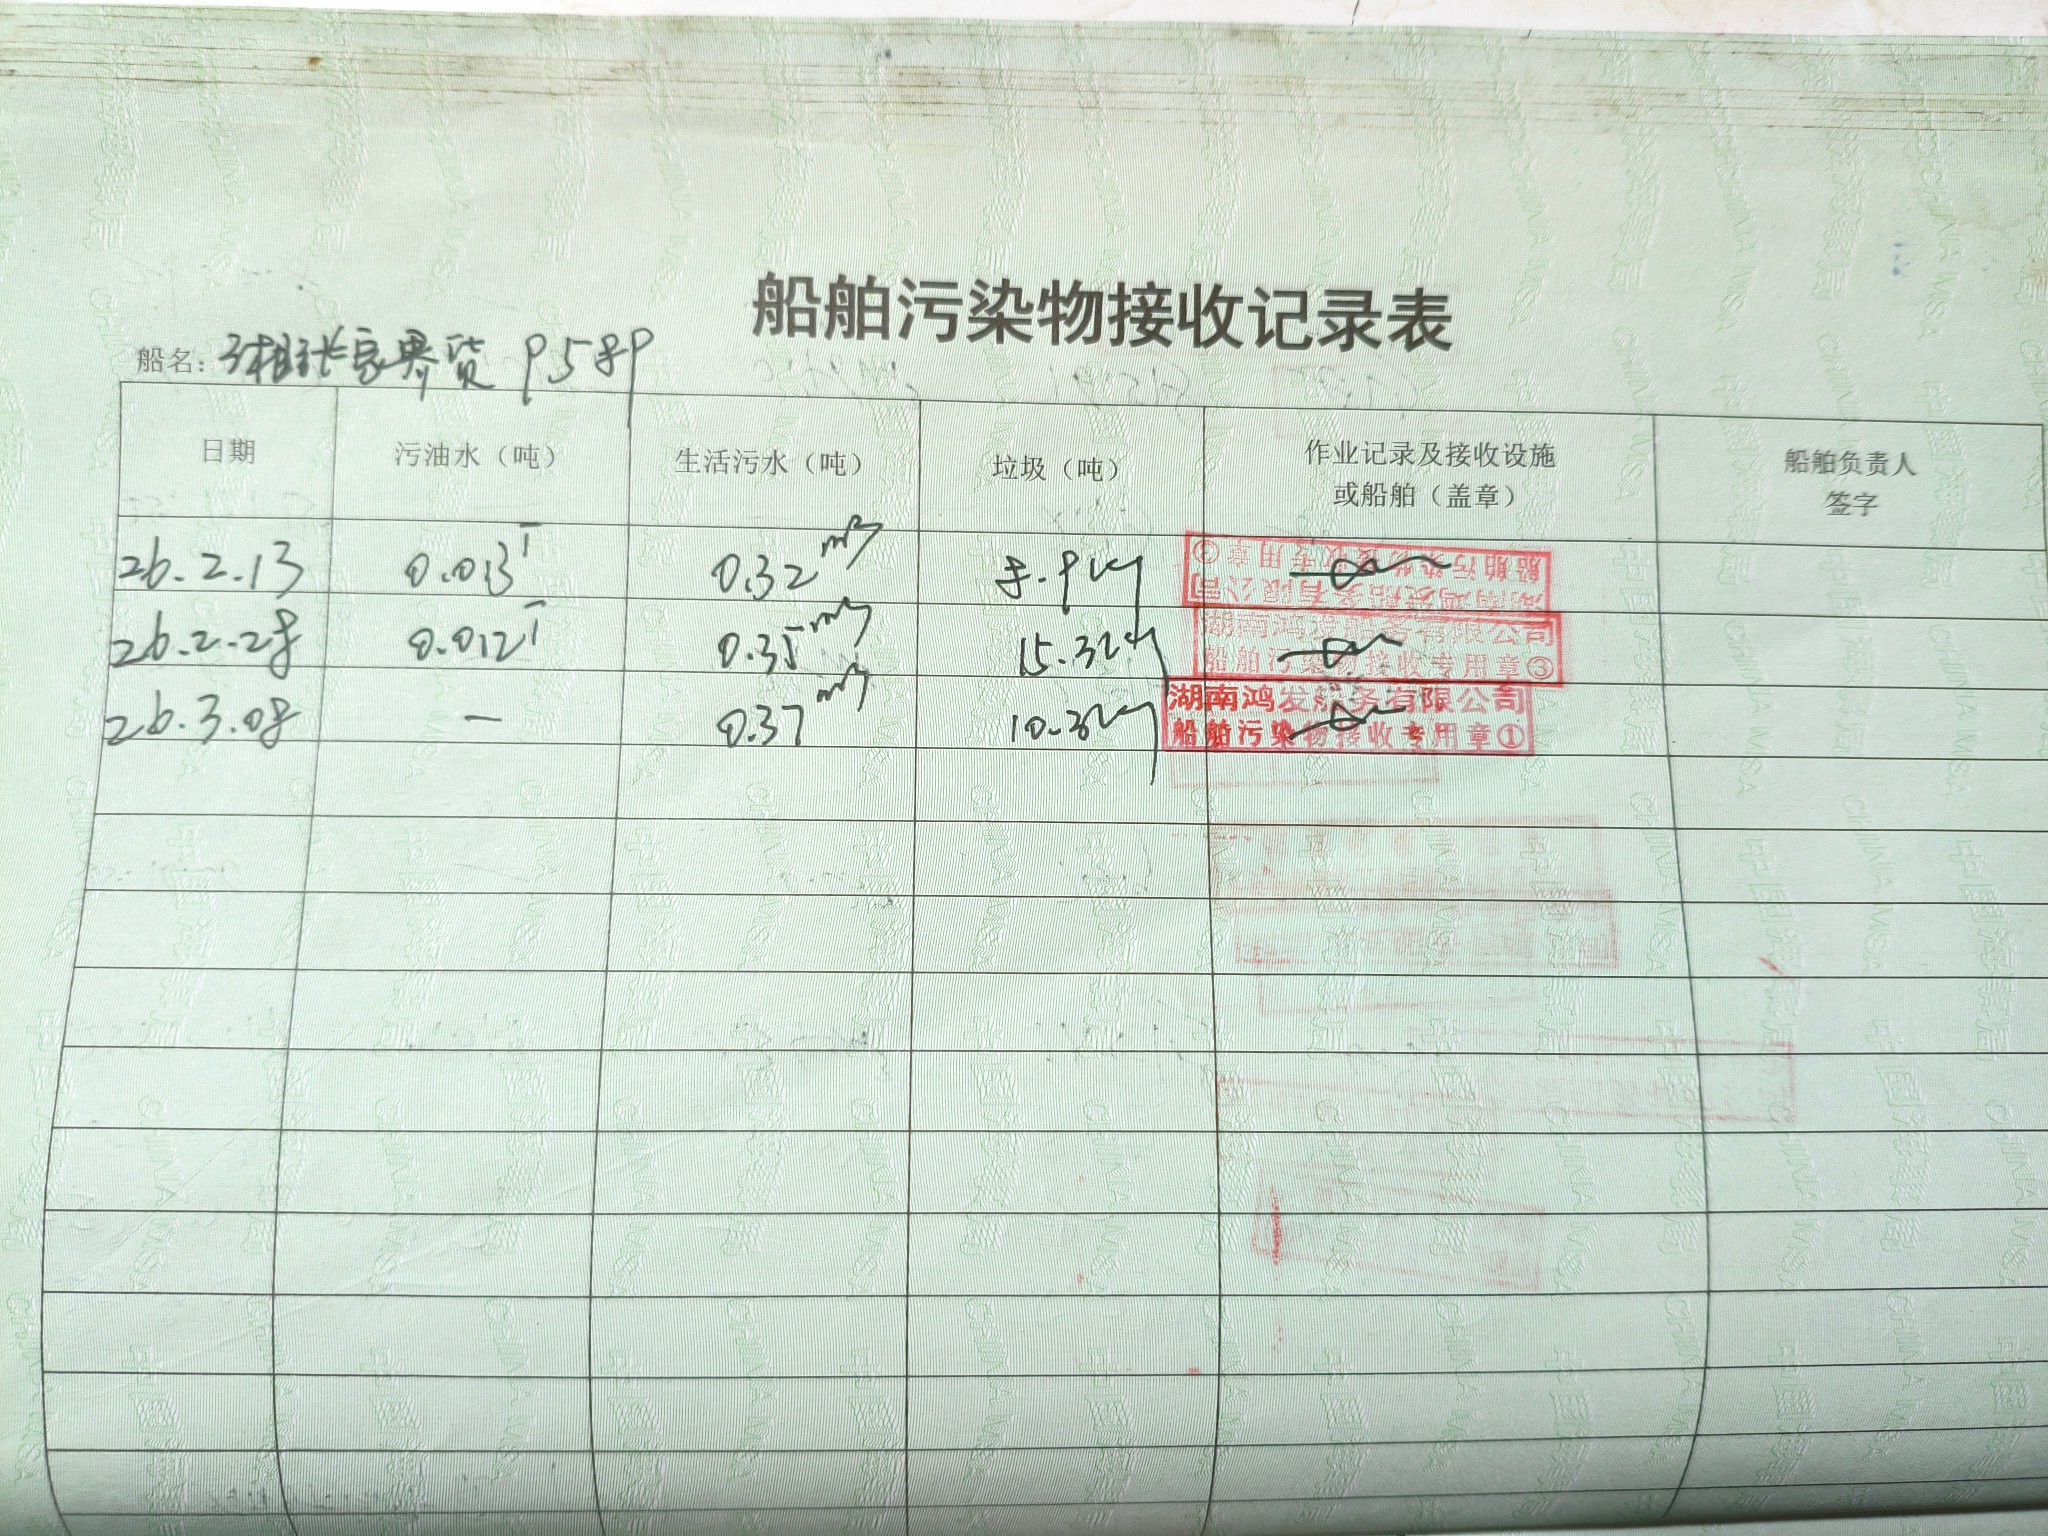 船舶污染物接收记录表
船名: 湘张家界货 9589
日期 污油水（吨） 生活污水（吨） 垃圾（吨） 作业记录及接收设施或船舶（盖章） 船舶负责人签字
26.2.13 0.013T 0.32m³ 8.9kg 湖南鸿发船务有限公司 船舶污染物接收专用章
26.2.28 0.012T 0.35m³ 15.3kg 湖南鸿发船务有限公司 船舶污染物接收专用章③
26.3.08 — 0.37m³ 10.3kg 湖南鸿发船务有限公司 船舶污染物接收专用章①
中国海事局 CHINA MSA